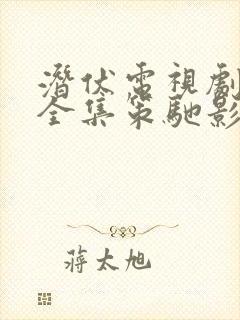 潛伏電視劇
全集策馳影
蔣太旭